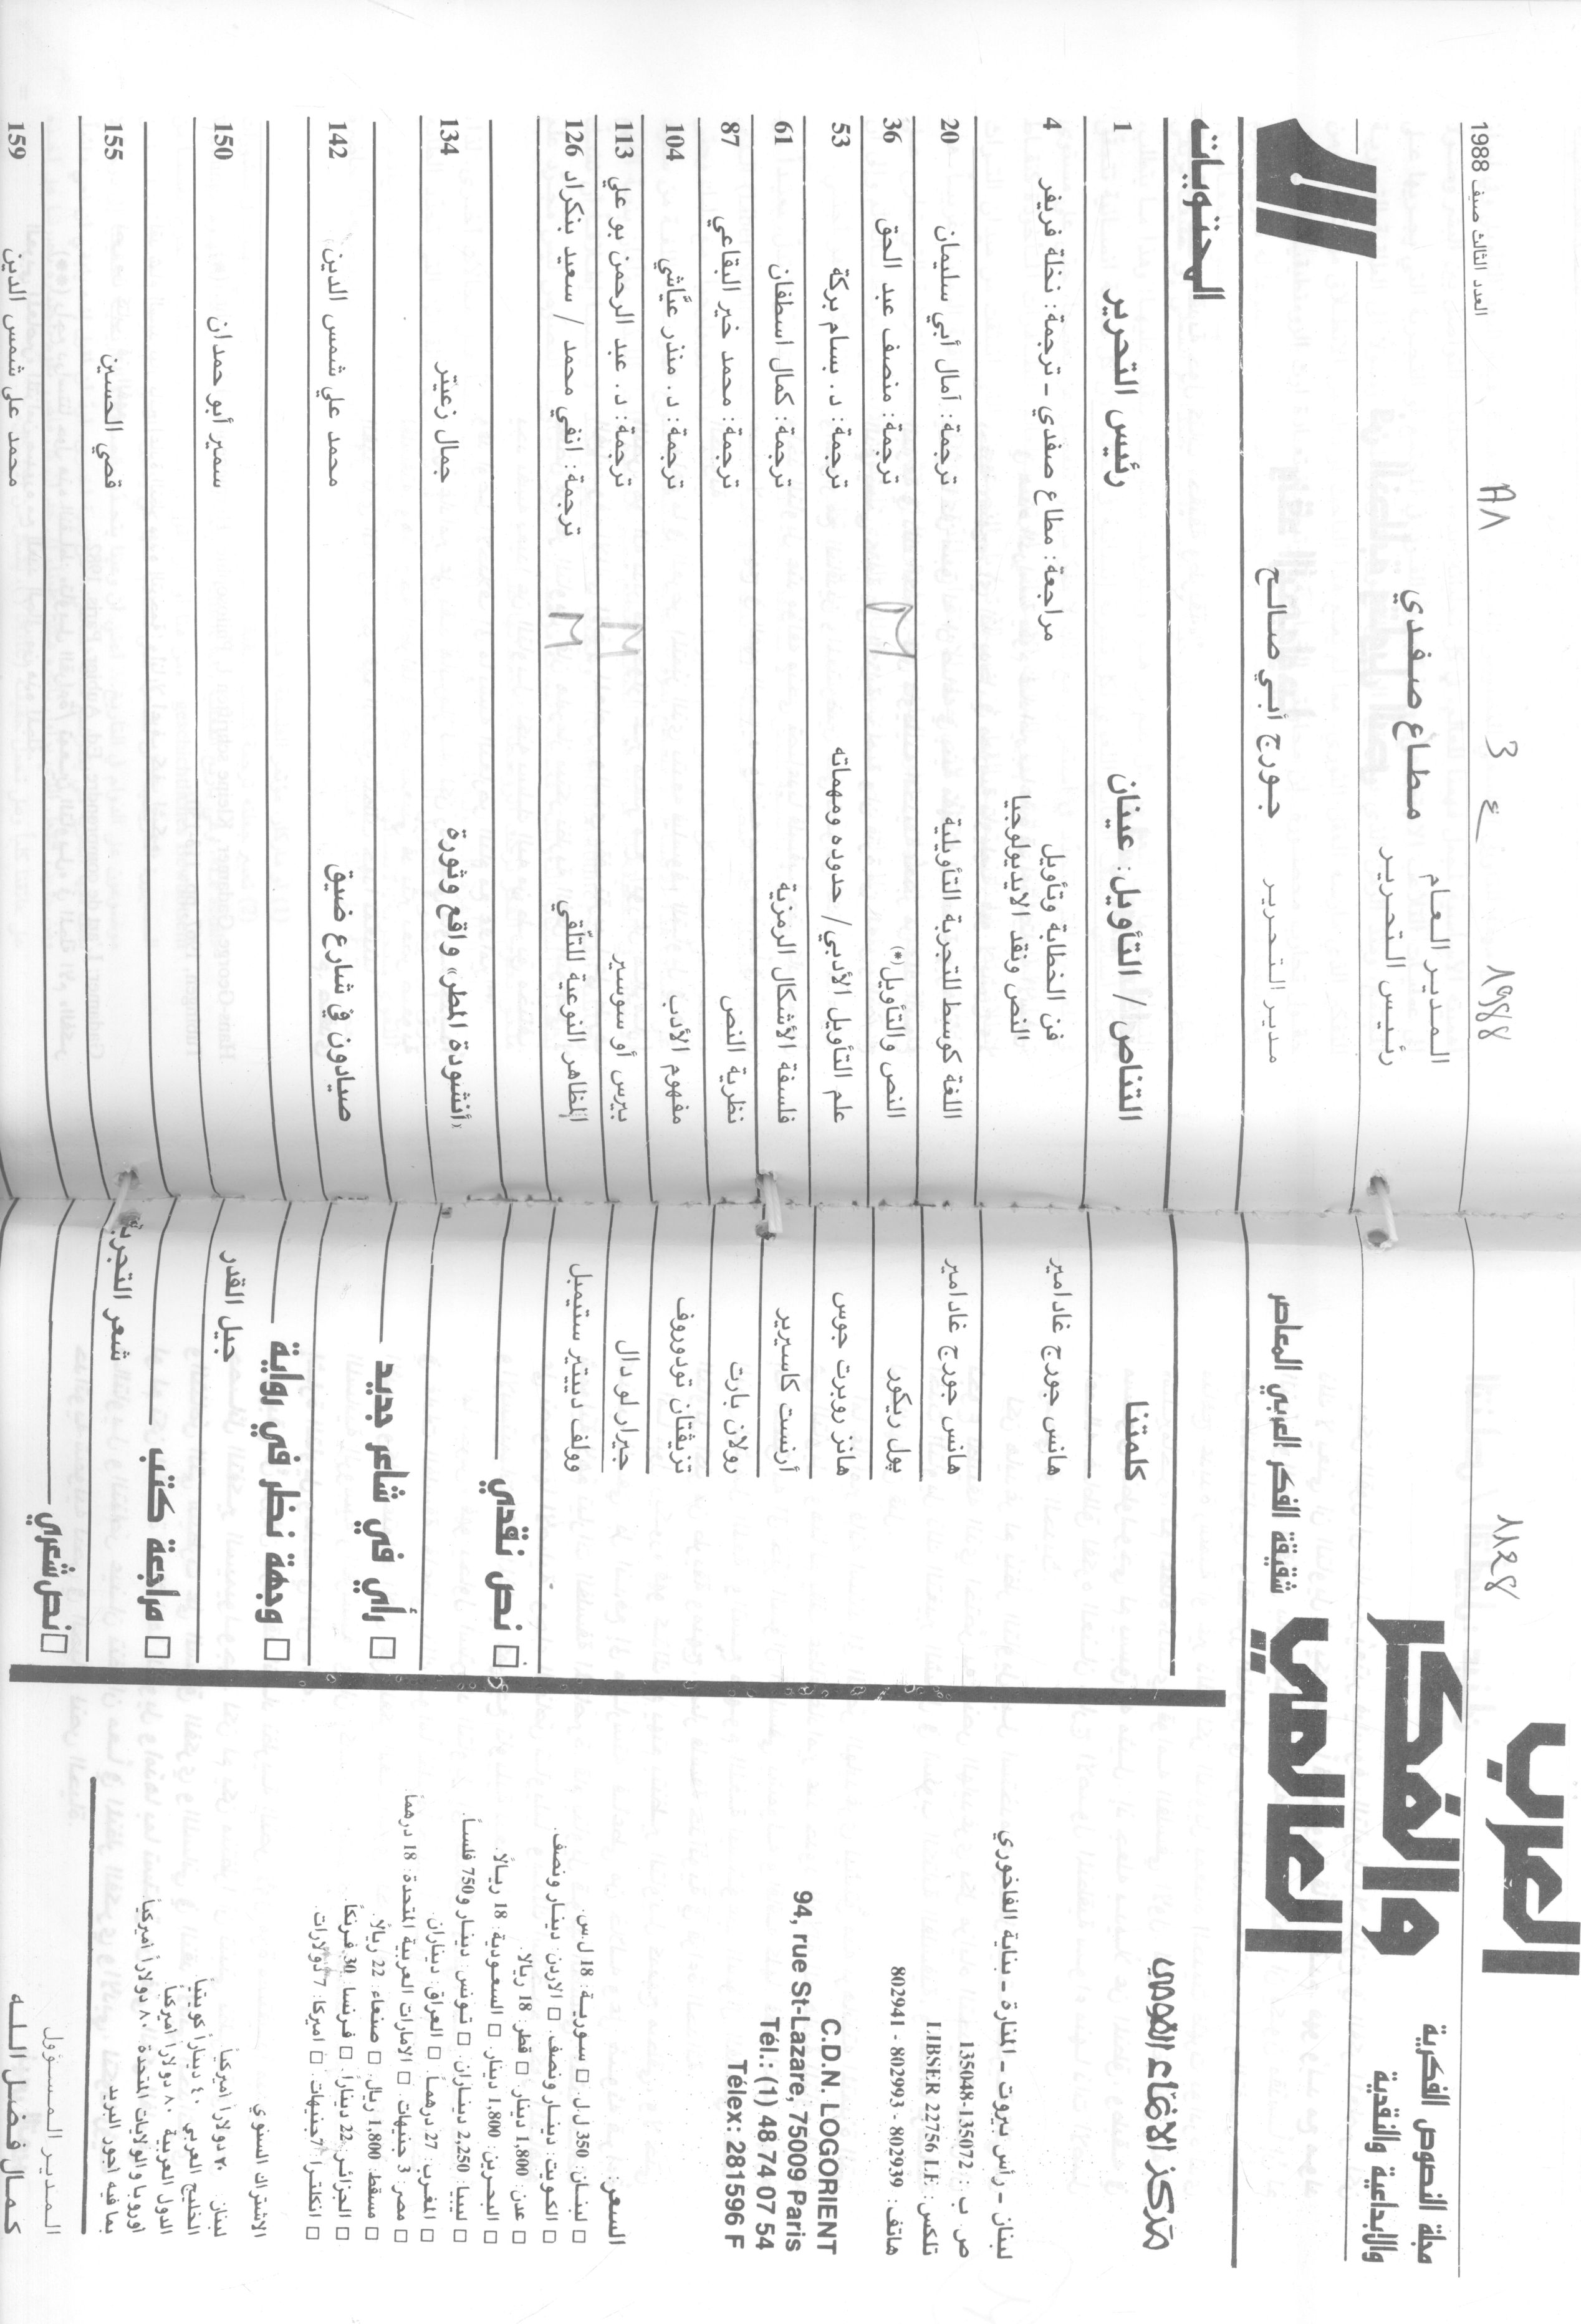 العرب
والفكر
العالمي
مجلة النصوص الفكرية
والابداعية والنقدية
شقيقة الفكر العربي المعاصر
1128
1988
3 ع
88
العدد الثالث صيف 1988
المدير العام
رئيس التحرير
مطاع صفدي
مدير التحرير جورج أبي صالح
المحتويات
كلمتنا التناص / التأويل: عينان رئيس التحرير 1
هانس جورج غادامير فن الخطابة وتأويل
النص ونقد الايديولوجيا مراجعة: مطاع صفدي - ترجمة: نخلة فريفر 4
هانس جورج غادامير اللغة كوسط للتجربة التأويلية ترجمة: آمال أبي سليمان 20
بول ريكور النص والتأويل(*) ترجمة: منصف عبد الحق 36
هانز روبرت جوس علم التأويل الأدبي/ حدوده ومهماته ترجمة: د. بسام بركة 53
أرنست كاسيرير فلسفة الأشكال الرمزية ترجمة: كمال اسطفان 61
رولان بارت نظرية النص ترجمة: محمد خير البقاعي 87
تزيفتان تودوروف مفهوم الأدب ترجمة: د. منذر عيّاشي 104
جيرار لو دال بيرس أو سوسير ترجمة: د. عبد الرحمن بو علي 113
وولف دييتير ستيمبل المظاهر النوعية للتلّقي ترجمة: انفي محمد / سعيد بنكراد 126
□ نص نقدي
«أنشودة المطر» واقع وثورة جمال زعيتر 134
□ رأي في شاعر جديد
صيادون في شارع ضيق محمد علي شمس الدين 142
□ وجهة نظر في رواية
جبل القدر سمير أبو حمدان 150
□ مراجعة كتب
شعر التجربة قصي الحسين 155
□ نص شعري
محمد علي شمس الدين 159
مركز الانماء القومي
لبنان - رأس بيروت - المنارة - بناية الفاخوري
ص ب : 135048-135072
تلكس: LIBSER 22756 LE
هاتف : 802939 - 802993 - 802941
C.D.N. LOGORIENT
94, rue St-Lazare, 75009 Paris
Tél.: (1) 48 74 07 54
Télex: 281596 F
السعر:
□ لبنان: 350 ل.ل. □ سورية: 18 ل.س.
□ الكويت: دينار ونصف. □ الاردن: دينار ونصف.
□ عدن: 1,800 دينار. □ قطر: 18 ريالا.
□ البحرين: 1,800 دينار. □ السعودية: 18 ريالا.
□ ليبيا: 2,250 ديناران. □ تونس: دينار و750 فلساً.
□ المغرب: 27 درهماً. □ العراق: ديناران.
□ مصر: 3 جنيهات. □ الامارات العربية المتحدة: 18 درهماً.
□ مسقط: 1,800 ريال. □ صنعاء: 22 ريالا.
□ الجزائر: 22 ديناراً. □ فرنسا: 30 فرنكاً.
□ انكلترا: 7جنيهات. □ اميركا: 7 دولارات.
الاشتراك السنوي
لبنان ٢٠ دولاراً اميركياً
الخليج العربي ٤٠ ديناراً كويتياً
الدول العربية ٨٠ دولاراً اميركياً
اوروبا والولايات المتحدة ٨٠ دولاراً اميركياً
بما فيه اجور البريد
المدير المسؤول
كمال فضل الله